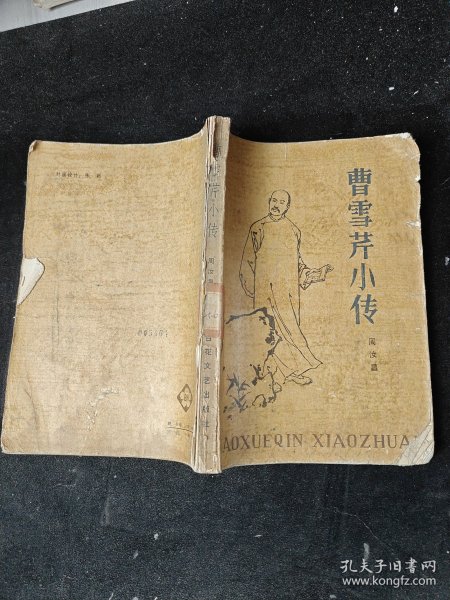 曹雪芹小传
周汝昌
AOXUEQIN XIAOZHUA
雪芹小传
周汝昌
百花文艺出版社
封面设计：陈新
005504
孔夫子旧书网
www.kongfz.com